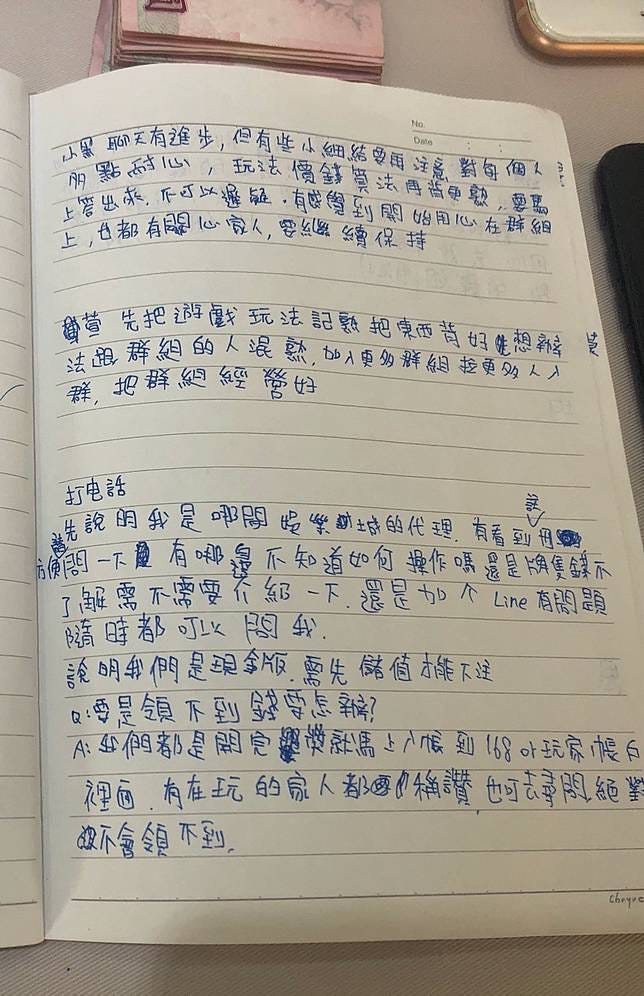 No.
Date : :
小黑 聊天有進步, 但有些小細節要再注意 對每個人
多點耐心, 玩法 價錢 算法 再背更熟, 要馬
上答出來. 不可以遲疑. 有感覺到開始用心在群組
上, 也都有關心家人, 要繼續保持
萱 先把遊戲玩法記熟 把東西背好 想辦
法跟群組的人混熟, 加入更多群組 拉更多人入
群, 把群組經營好
打电話
先說明我是哪間娛樂城的代理. 有看到 註冊
方便問一下 有哪邊不知道如何操作嗎 還是 牌隻錢不
了解 需不需要介紹一下. 還是加个 Line 有問題
隨時都可以問我.
說明我們是現金版. 需先儲值才能下注
Q: 要是領不到錢要怎辦?
A: 我們都是開完獎就馬上入帳到168 or玩家帳戶
裡面. 有在玩的家人都 稱讚, 也可去尋問, 絕對
不會領不到.